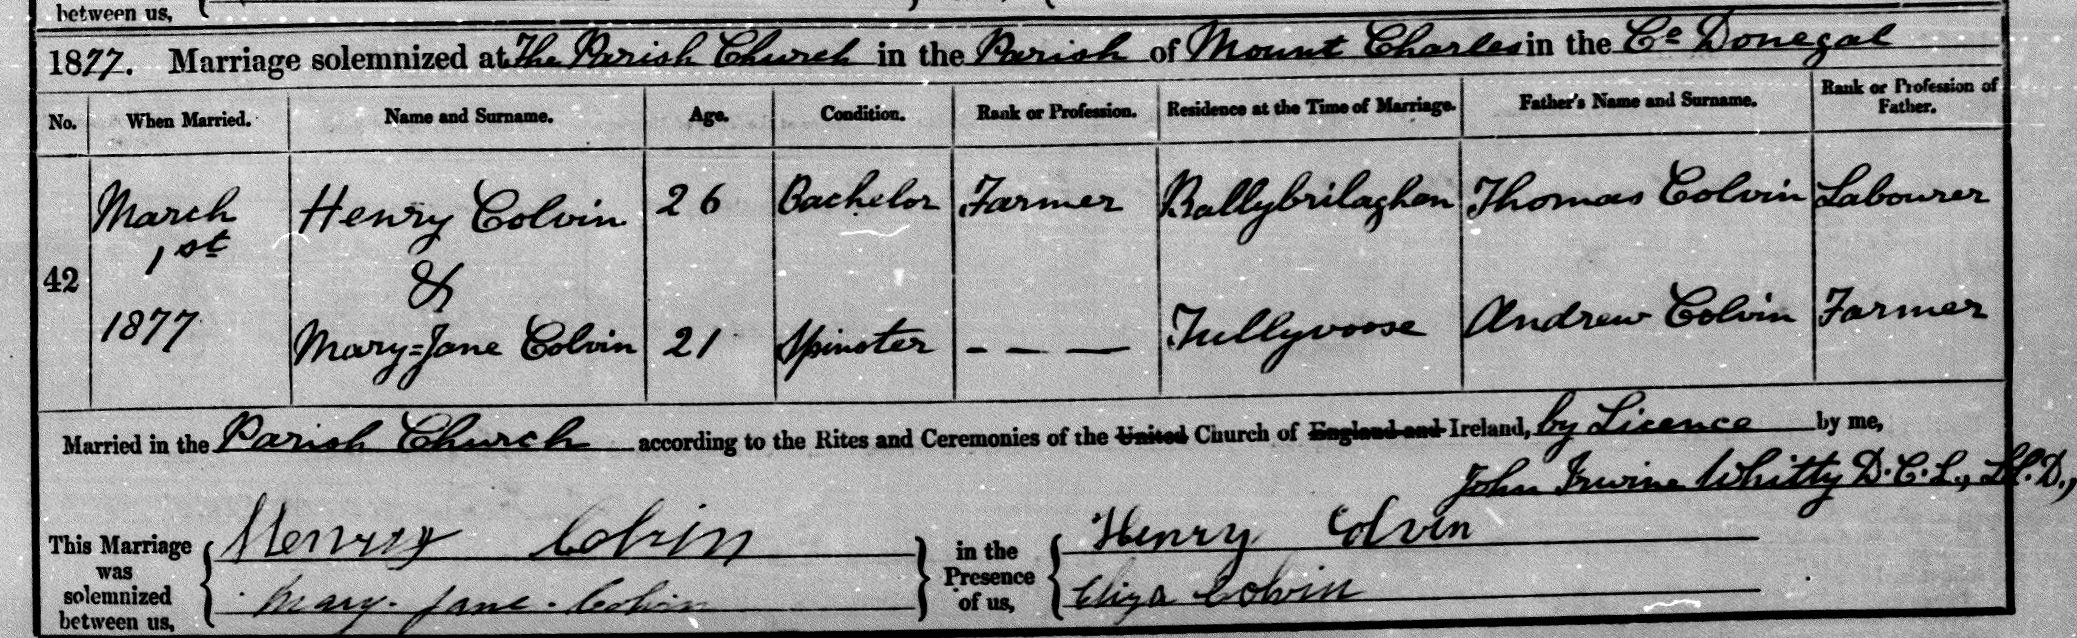 between us,
1877. Marriage solemnized at The Parish Church in the Parish of Mount Charles in the Co Donegal
No. When Married. Name and Surname. Age. Condition. Rank or Profession. Residence at the Time of Marriage. Father's Name and Surname. Rank or Profession of Father.
March Henry Colvin 26 Bachelor Farmer Ballybrilaghan Thomas Colvin Labourer
1st
42 &
1877 Mary=Jane Colvin 21 Spinster - — — Tullyvoose Andrew Colvin Farmer
Married in the Parish Church according to the Rites and Ceremonies of the United Church of England and Ireland, by Licence by me,
John Irwine Whitty D.C.L., LL.D.,
Henry Colvin Henry Colvin
This Marriage was solemnized between us, in the Presence of us,
Mary. Jane. Colvin Eliza Colvin